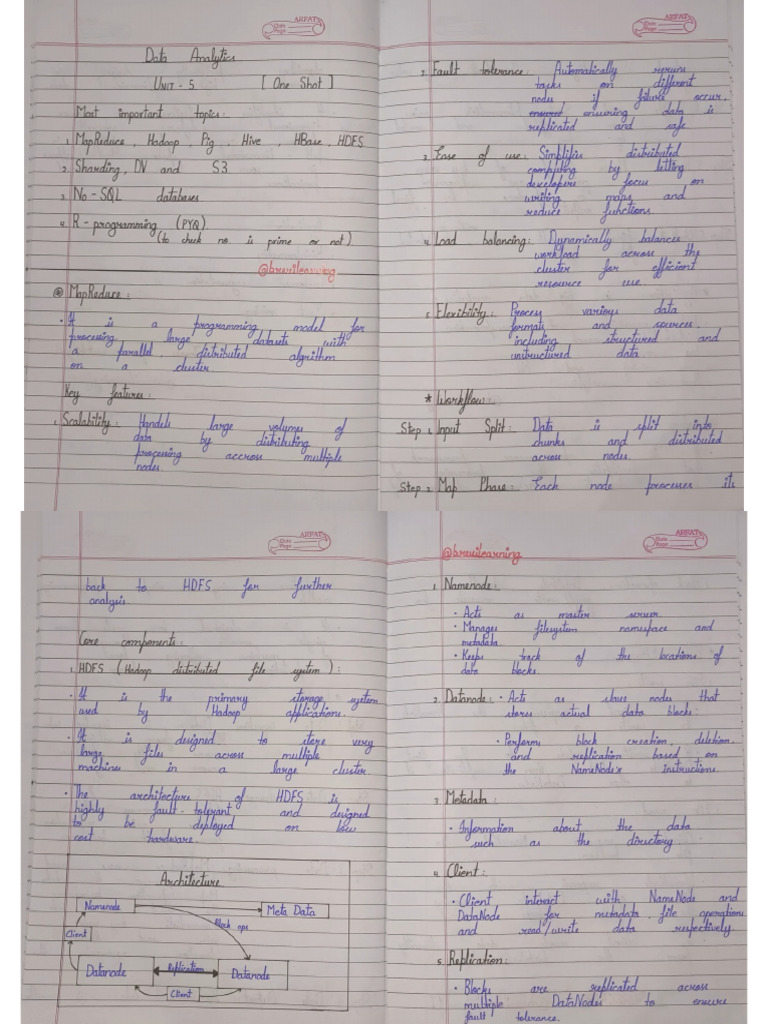 ARFAT
Date
Page
Data Analytics
UNIT - 5 [ One Shot ]
Most important topics:
1. MapReduce, Hadoop, Pig, Hive, HBase, HDFS
2. Sharding, DV and S3
3. No-SQL databases
4. R-programming (PYQ)
(to check no. is prime or not)
@brevilearning
MapReduce:
• It is a programming model for
processing large datasets with
a parallel, distributed algorithm
on a cluster.
Key features:
1. Scalability: Handels large volumes of
data by distributing
processing accross multiple
nodes.
ARFAT
Date
Page
2. Fault tolerance: Automatically reruns
tasks on different
nodes if failure occur,
ensured ensuring data is
replicated and safe
3. Ease of use: Simplifies distributed
computing by letting
developers focus on
writing maps and
reduce functions.
4. Load balancing: Dynamically balances
workload across the
cluster for efficient
resource use.
5. Flexibility: Process various data
formats and sources,
including structured and
unstructured data.
* Workflow:
Step 1. Input Split: Data is split into
chunks and distributed
across nodes.
Step 2. Map Phase: Each node processes its
ARFAT
Date
Page
back to HDFS for further
analysis.
Core components:
1. HDFS (Hadoop distributed file system):
• It is the primary storage system
used by Hadoop applications.
• It is designed to store very
large files across multiple
machines in a large cluster.
• The architecture of HDFS is
highly fault-tolerant and designed
to be deployed on low
cost hardware.
Architecture
Namenode
Meta Data
Block ops
Client
Datanode
Replication
Datanode
Client
ARFAT
Date
Page
@brevilearning
1. Namenode:
• Acts as master server.
• Manages filesystem namespace and
metadata.
• Keeps track of the locations of
data blocks.
2. Datanode: • Acts as slave nodes that
stores actual data blocks.
• Performs block creation, deletion,
and replication based on
the NameNode's instructions.
3. Metadata:
• Information about the data
such as the directory.
4. Client:
• Client interact with NameNode and
DataNode for metadata, file operations
and read/write data respectively.
5. Replication:
• Blocks are replicated across
multiple DataNodes to ensure
fault tolerance.